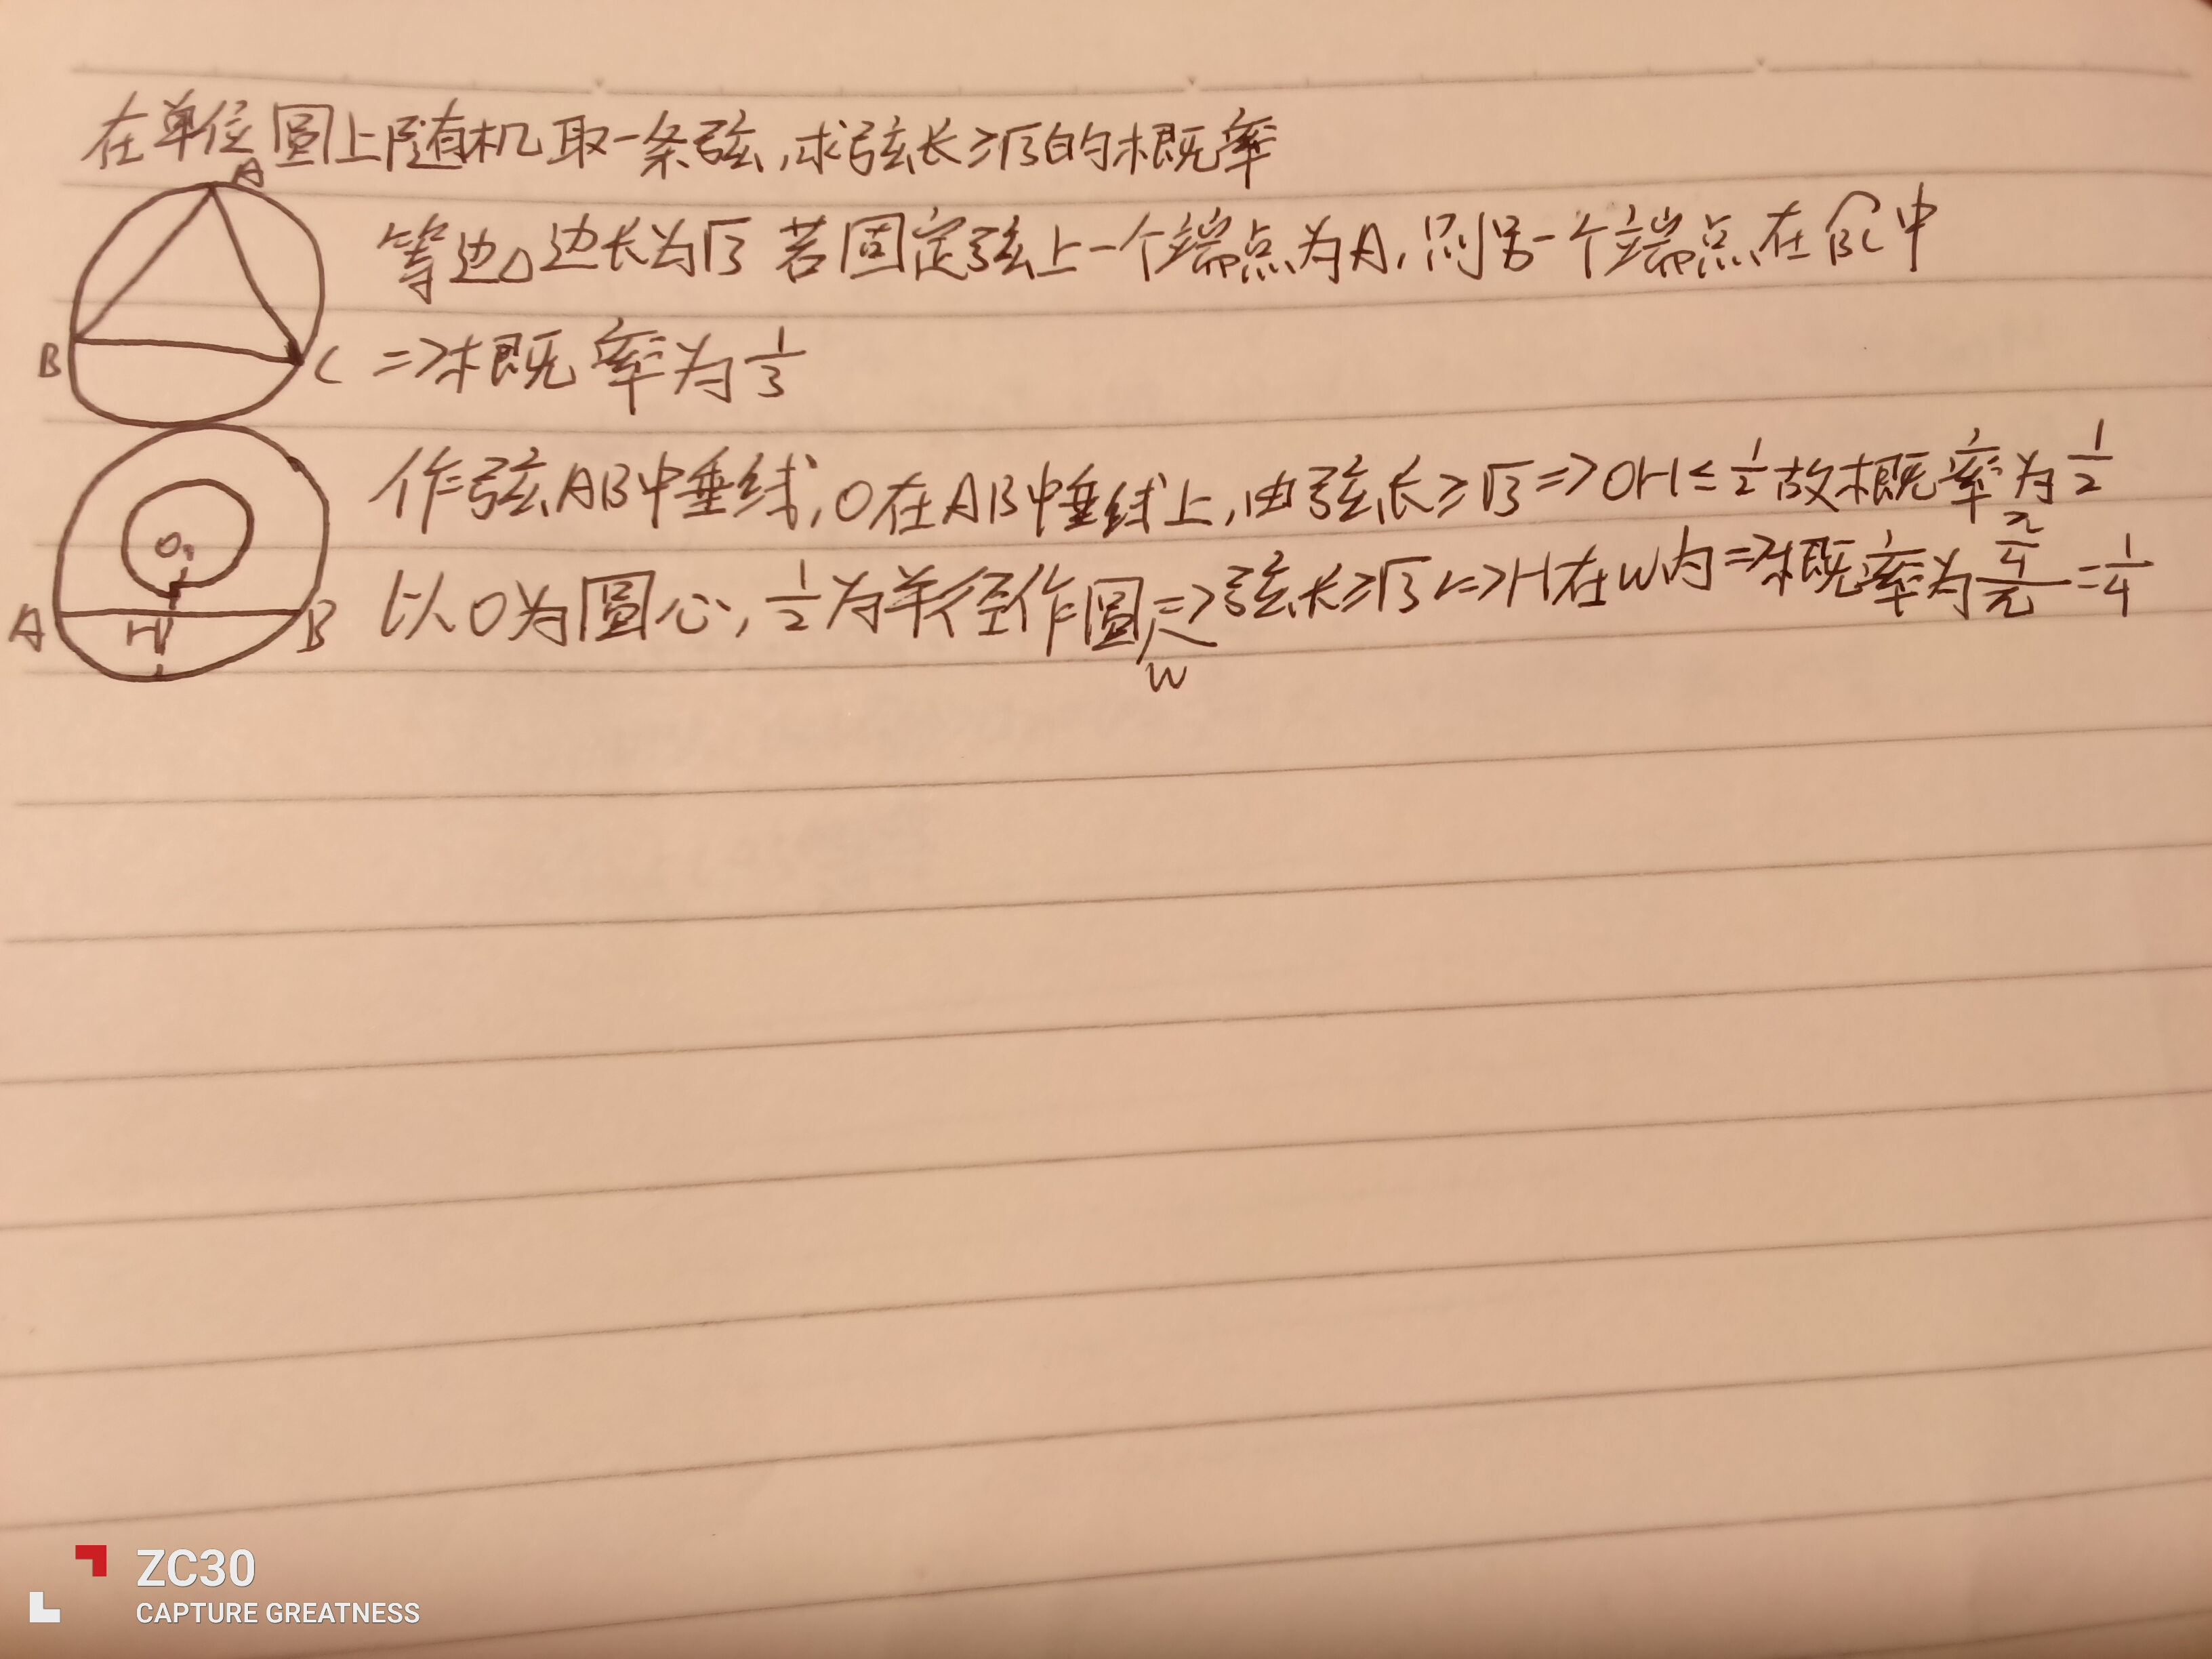 在单位圆上随机取一条弦,求弦长≥√3的概率
A
等边△边长为√3 若固定弦上一个端点为A,则另一个端点在BC中
B
C
=>概率为1/3
作弦AB中垂线,O在AB中垂线上,由弦长≥√3=>OH≤1/2故概率为1/2
O
以O为圆心,1/2为半径作圆=>弦长≥√3<=>H在W内=>概率为π/4/π=1/4
A
H
B
W
ZC30
CAPTURE GREATNESS